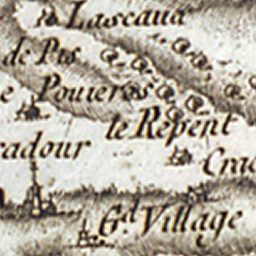 Lascaud
de Pis
e Pouieros
le Repent
radour
Crac
G.d Village